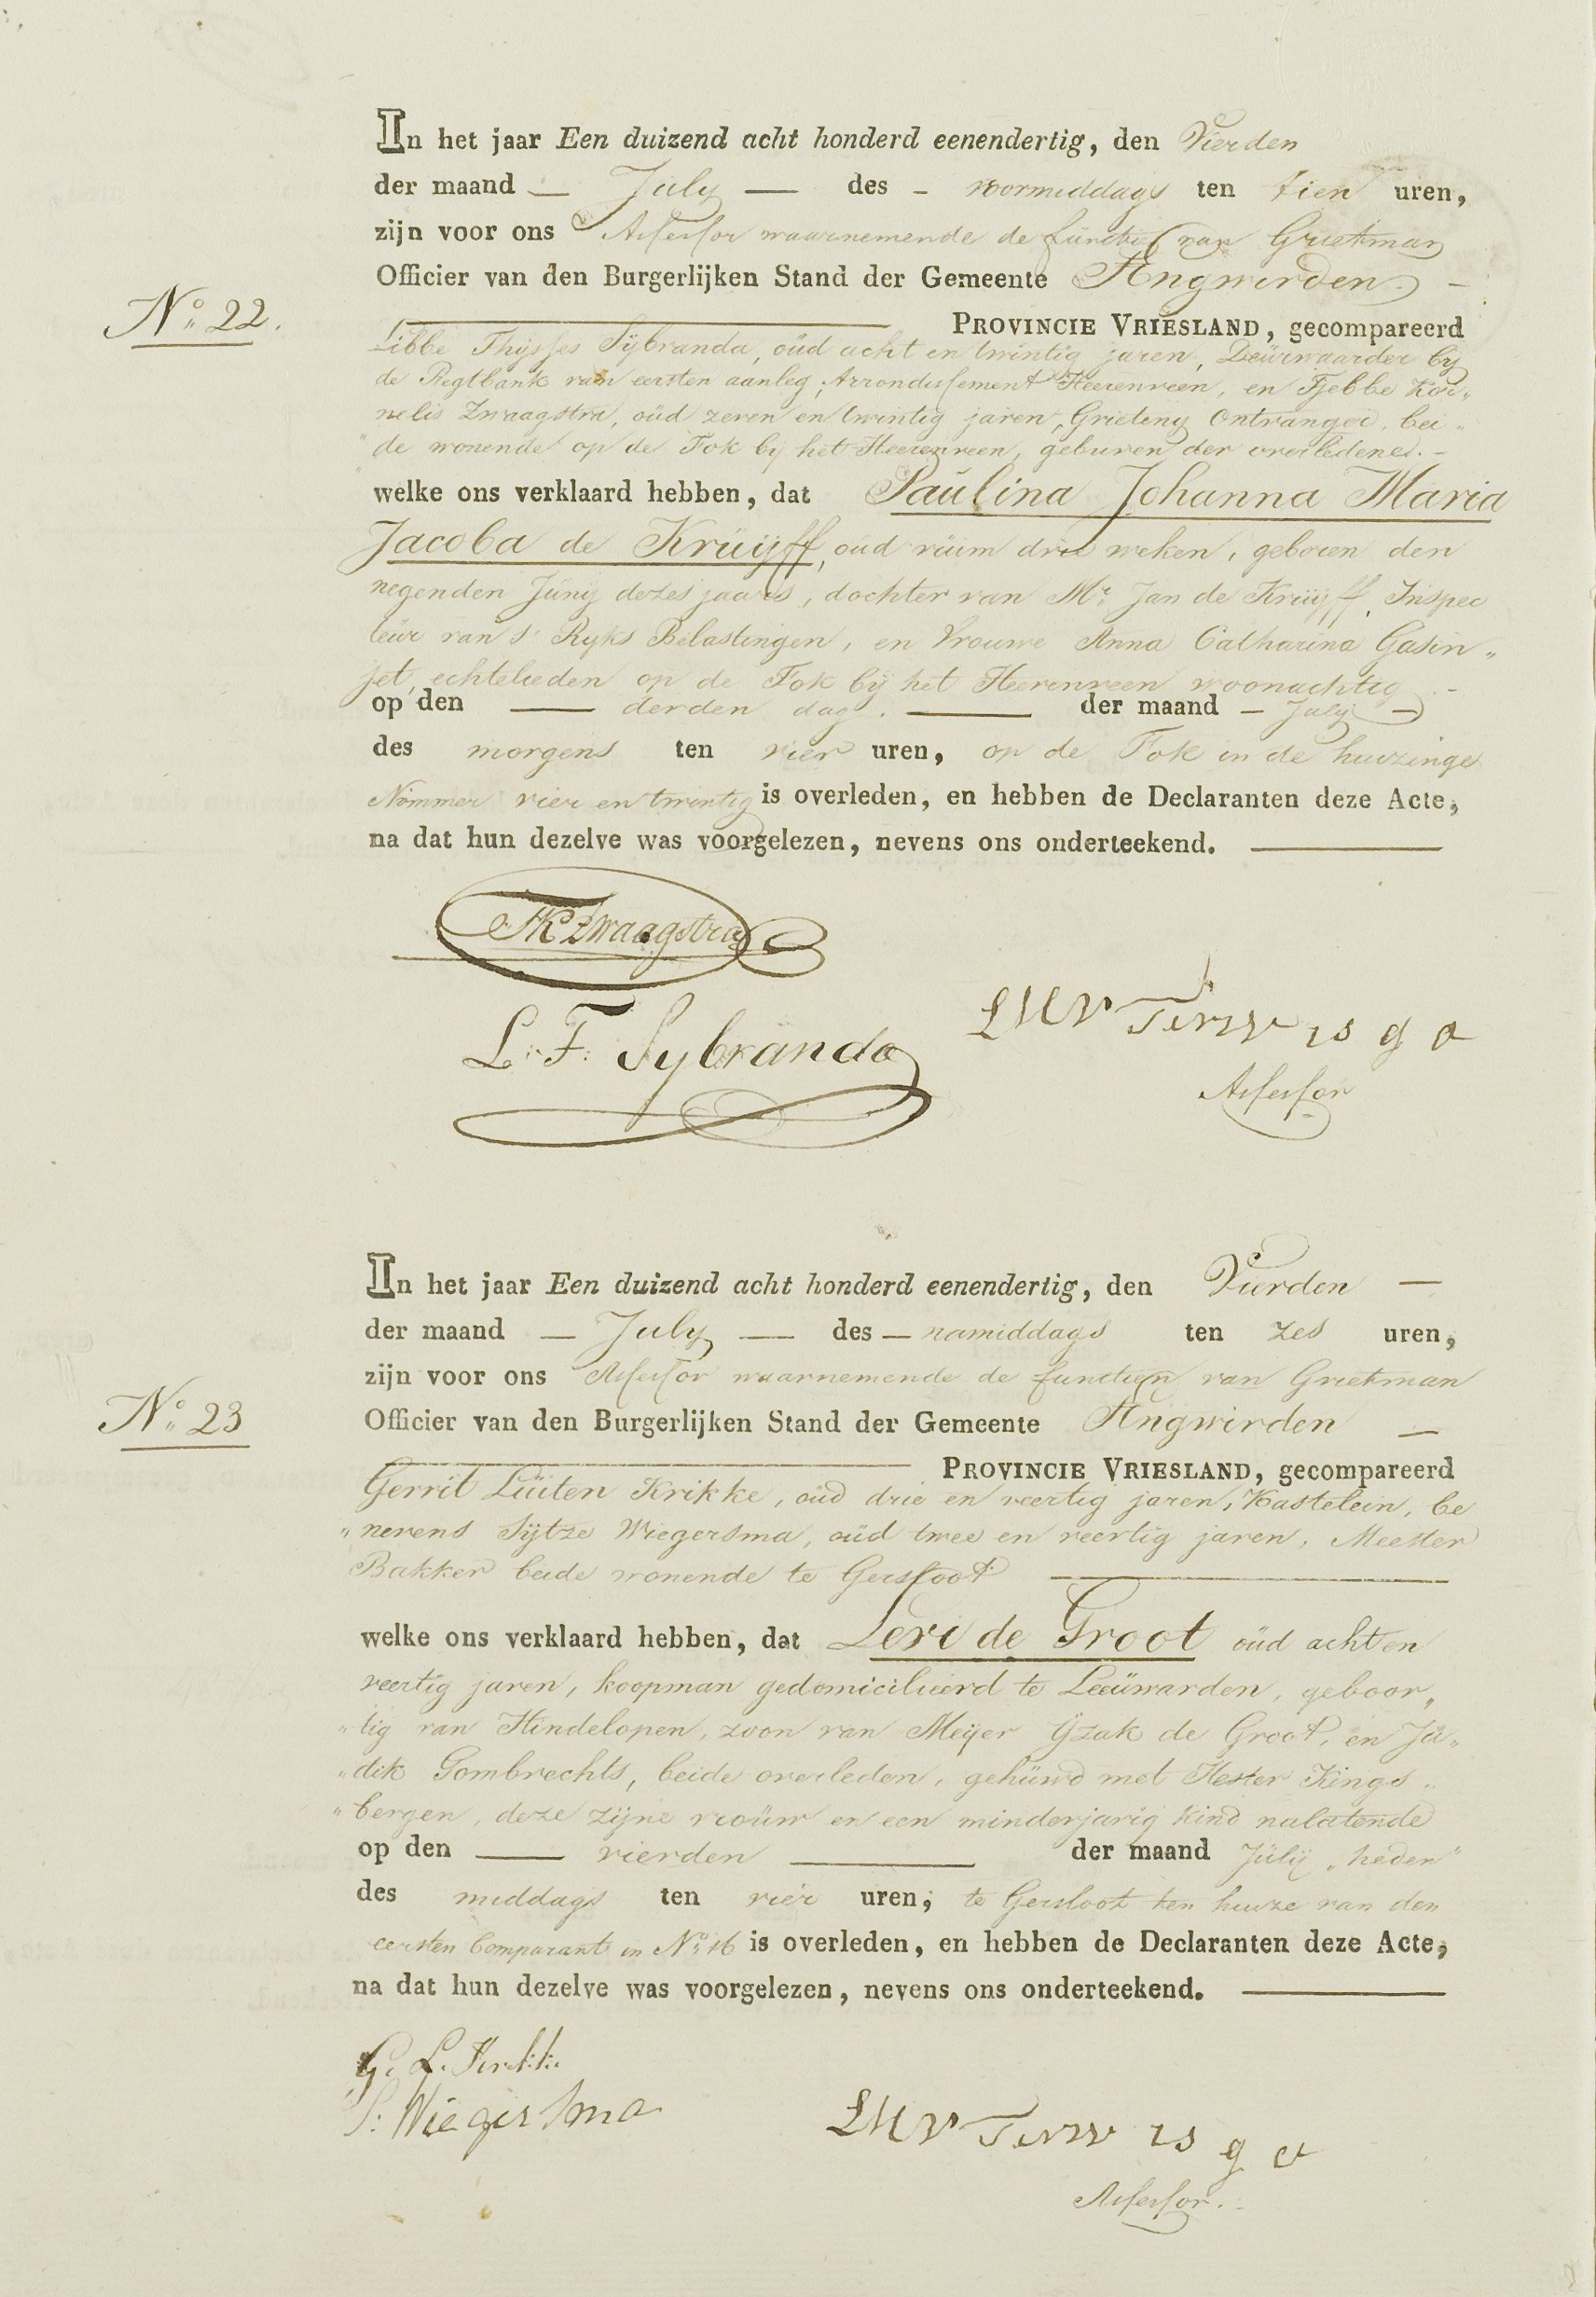 In het jaar Een duizend acht honderd eenendertig, den Vierden
der maand — July — des - voormiddags ten tien uren,
zijn voor ons Assessor waarnemende de functie van Grietman
Officier van den Burgerlijken Stand der Gemeente Ængwirden. —
No. 22.
PROVINCIE VRIESLAND, gecompareerd
Libbe Thijsjes Sijbranda, oud acht en twintig jaren, Deurwaarder bij
de Regtbank van eersten aanleg, Arrondissement Heerenveen, en Tjebbe Kor„
nelis Zwaagstra, oud zeven en twintig jaren, Grieteny Ontvanger, bei„
„de wonende op de Fok bij het Heerenveen, geburen der overledene. —
welke ons verklaard hebben, dat Paulina Johanna Maria
Jacoba de Kruijff, oud ruim drie weken, geboren den
negenden Junij dezes jaars, dochter van Mr. Jan de Kruijff, Inspec
teur van s' Ryks Belastingen, en Vrouwe Anna Catharina Gasin„
jet, echtelieden op de Fok bij het Heerenveen woonachtig —
op den — derden dag. — der maand — July —
des morgens ten vier uren, op de Fok in de huizinge
Nommer vier en twintig is overleden, en hebben de Declaranten deze Acte,
na dat hun dezelve was voorgelezen, nevens ons onderteekend. —
TK Zwaagstra
L. F. Sybranda
LMV Terwisga
Assessor
In het jaar Een duizend acht honderd eenendertig, den Vierden —
der maand — July — des — namiddags ten zes uren,
zijn voor ons Assessor waarnemende de functien van Grietman
Officier van den Burgerlijken Stand der Gemeente Ængwirden —
No. 23
PROVINCIE VRIESLAND, gecompareerd
Gerrit Luiten Krikke, oud drie en veertig jaren, Kastelein, be
„nevens Sijtze Wiegersma, oud twee en veertig jaren, Meester
Bakker beide wonende te Gersloot —
welke ons verklaard hebben, dat Levi de Groot oud acht en
veertig jaren, koopman gedomicilieerd te Leeuwarden, geboor„
„tig van Hindelopen, zoon van Meijer Yzak de Groot, en Ju„
„dik Gombrechts, beide overleden, gehuwd met Hester Kings„
„bergen, deze zijne vrouw en een minderjarig kind nalatende
op den — vierden — der maand Julij „heden"
des middags ten vier uren, te Gersloot ten huize van den
eersten Comparant in No. 16 is overleden, en hebben de Declaranten deze Acte,
na dat hun dezelve was voorgelezen, nevens ons onderteekend. —
G. L. Krikke
S: Wiegersma
LMV Terwisga
Assessor.